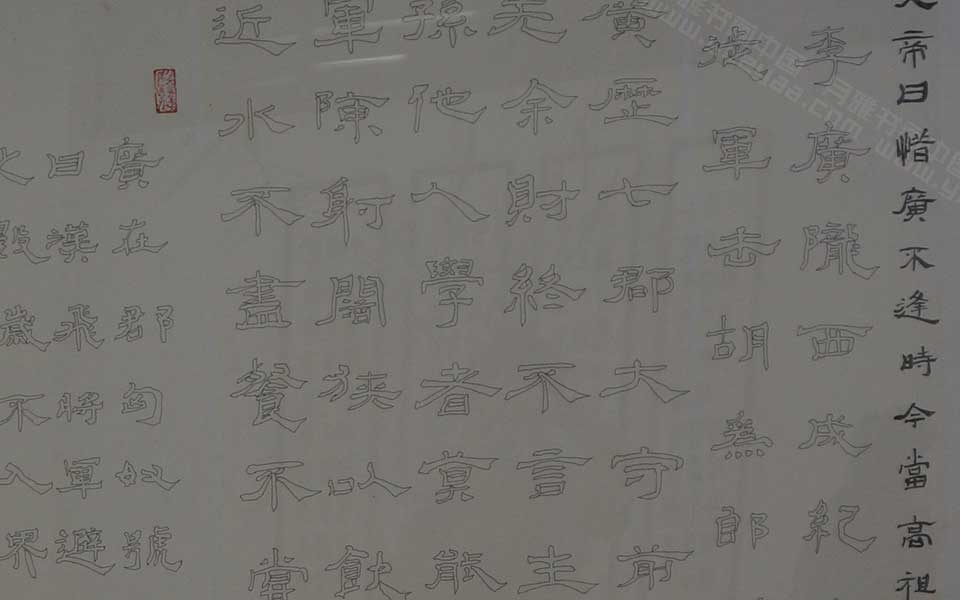 帝曰惜廣不逢時今當高祖
李廣隴西成紀
從軍击胡為郎
廣歷七郡大守前
无余財終不言主
孫他人學者莫能
軍陳射闊狹以飲
近水不盡餐不嘗
廣在郡匈奴號
曰漢飛將軍避
之數歲不入界